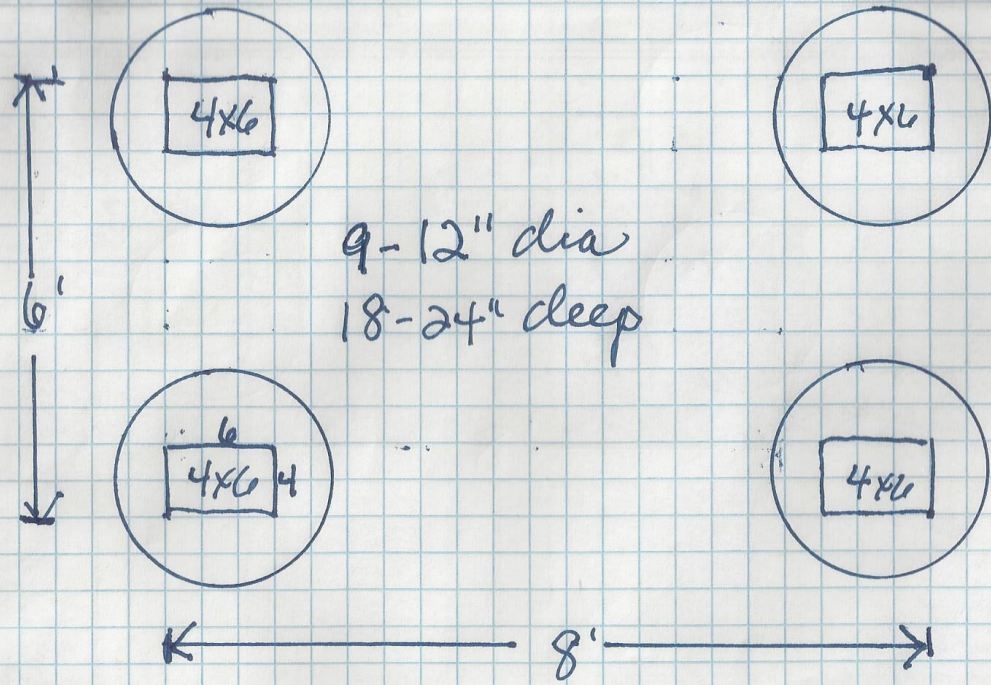 4x6 4x6
9-12" dia
6'
18-24" deep
6
4x6 4 4x6
8'